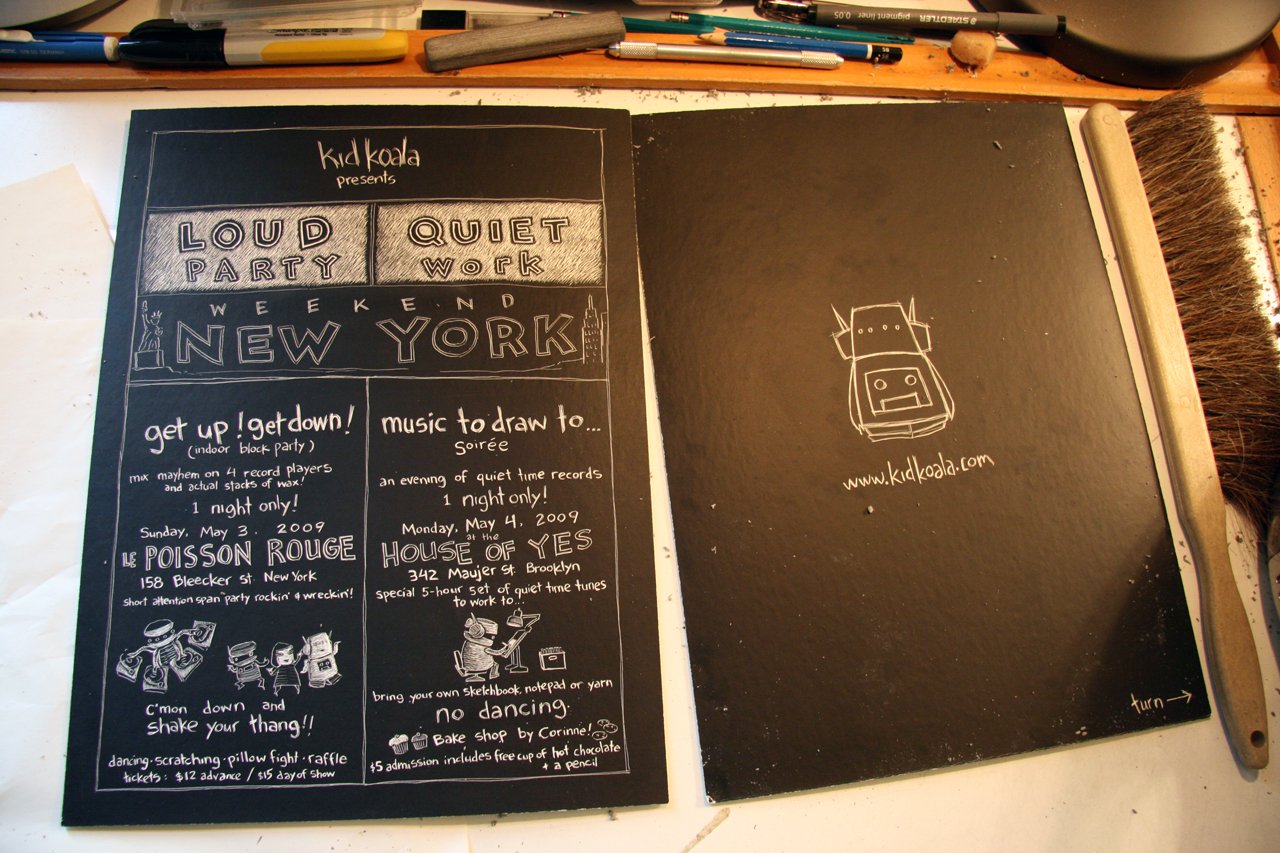 STAEDTLER
pigment liner
0.05
Sharpie
5B
kid koala
presents
LOUD
PARTY
QUIET
work
WEEKEND
NEW YORK
get up! get down!
(indoor block party)
mix mayhem on 4 record players
and actual stacks of wax!
1 night only!
Sunday, May 3. 2009
LE POISSON ROUGE
158 Bleecker St. New York
short attention span "party rockin' & wreckin'!
C'mon down and
shake your thang!!
dancing · scratching · pillow fight · raffle
tickets: $12 advance / $15 day of show
music to draw to...
Soirée
an evening of quiet time records
1 night only!
Monday, May 4, 2009
at the
HOUSE OF YES
342 Maujer St. Brooklyn
special 5-hour set of quiet time tunes
to work to...
bring your own sketchbook, notepad or yarn
no dancing.
Bake shop by Corinne!
$5 admission includes free cup of hot chocolate
+ a pencil
www.kidkoala.com
turn →